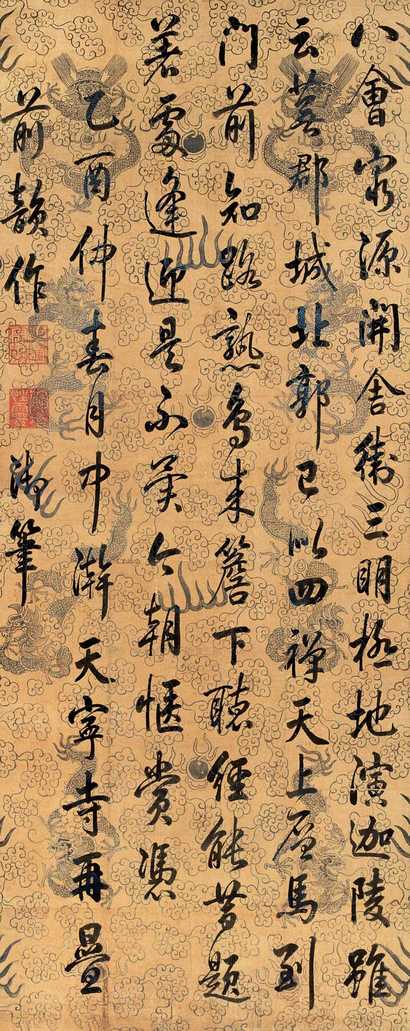 八會窮源開舍衛三明極地演迦陵雖
云蕪郡城北郭已似四禪天上層馬到
門前知路熟鳥来簷下聽經能昔題
著處逢迎是不異今朝愜賞憑
乙酉仲春月中澣天寧寺再疊
前韻作
御筆